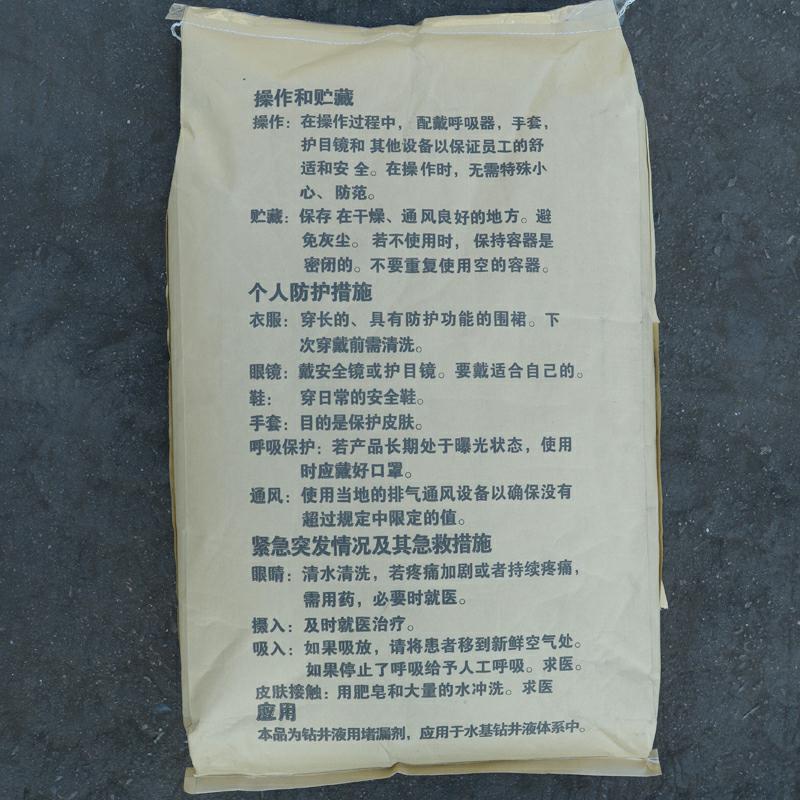 操作和贮藏
操作：在操作过程中，配戴呼吸器，手套，
护目镜和 其他设备以保证员工的舒
适和安 全。在操作时，无需特殊小
心、防范。
贮藏：保存 在干燥、通风良好的地方。避
免灰尘。若不使用时，保持容器是
密闭的。不要重复使用空的容器。
个人防护措施
衣服：穿长的、具有防护功能的围裙。下
次穿戴前需清洗。
眼镜：戴安全镜或护目镜。要戴适合自己的。
鞋：穿日常的安全鞋。
手套：目的是保护皮肤。
呼吸保护：若产品长期处于曝光状态，使用
时应戴好口罩。
通风：使用当地的排气通风设备以确保没有
超过规定中限定的值。
紧急突发情况及其急救措施
眼睛：清水清洗，若疼痛加剧或者持续疼痛，
需用药，必要时就医。
摄入：及时就医治疗。
吸入：如果吸放，请将患者移到新鲜空气处。
如果停止了呼吸给予人工呼吸。求医。
皮肤接触：用肥皂和大量的水冲洗。求医
应用
本品为钻井液用堵漏剂，应用于水基钻井液体系中。